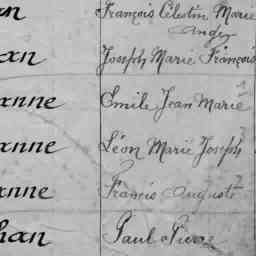 an François Célestin Marie
André
an Joseph Marie François
anne Emile Jean Marie
anne Léon Marie Joseph
anne Francis Auguste
han Paul Pierre